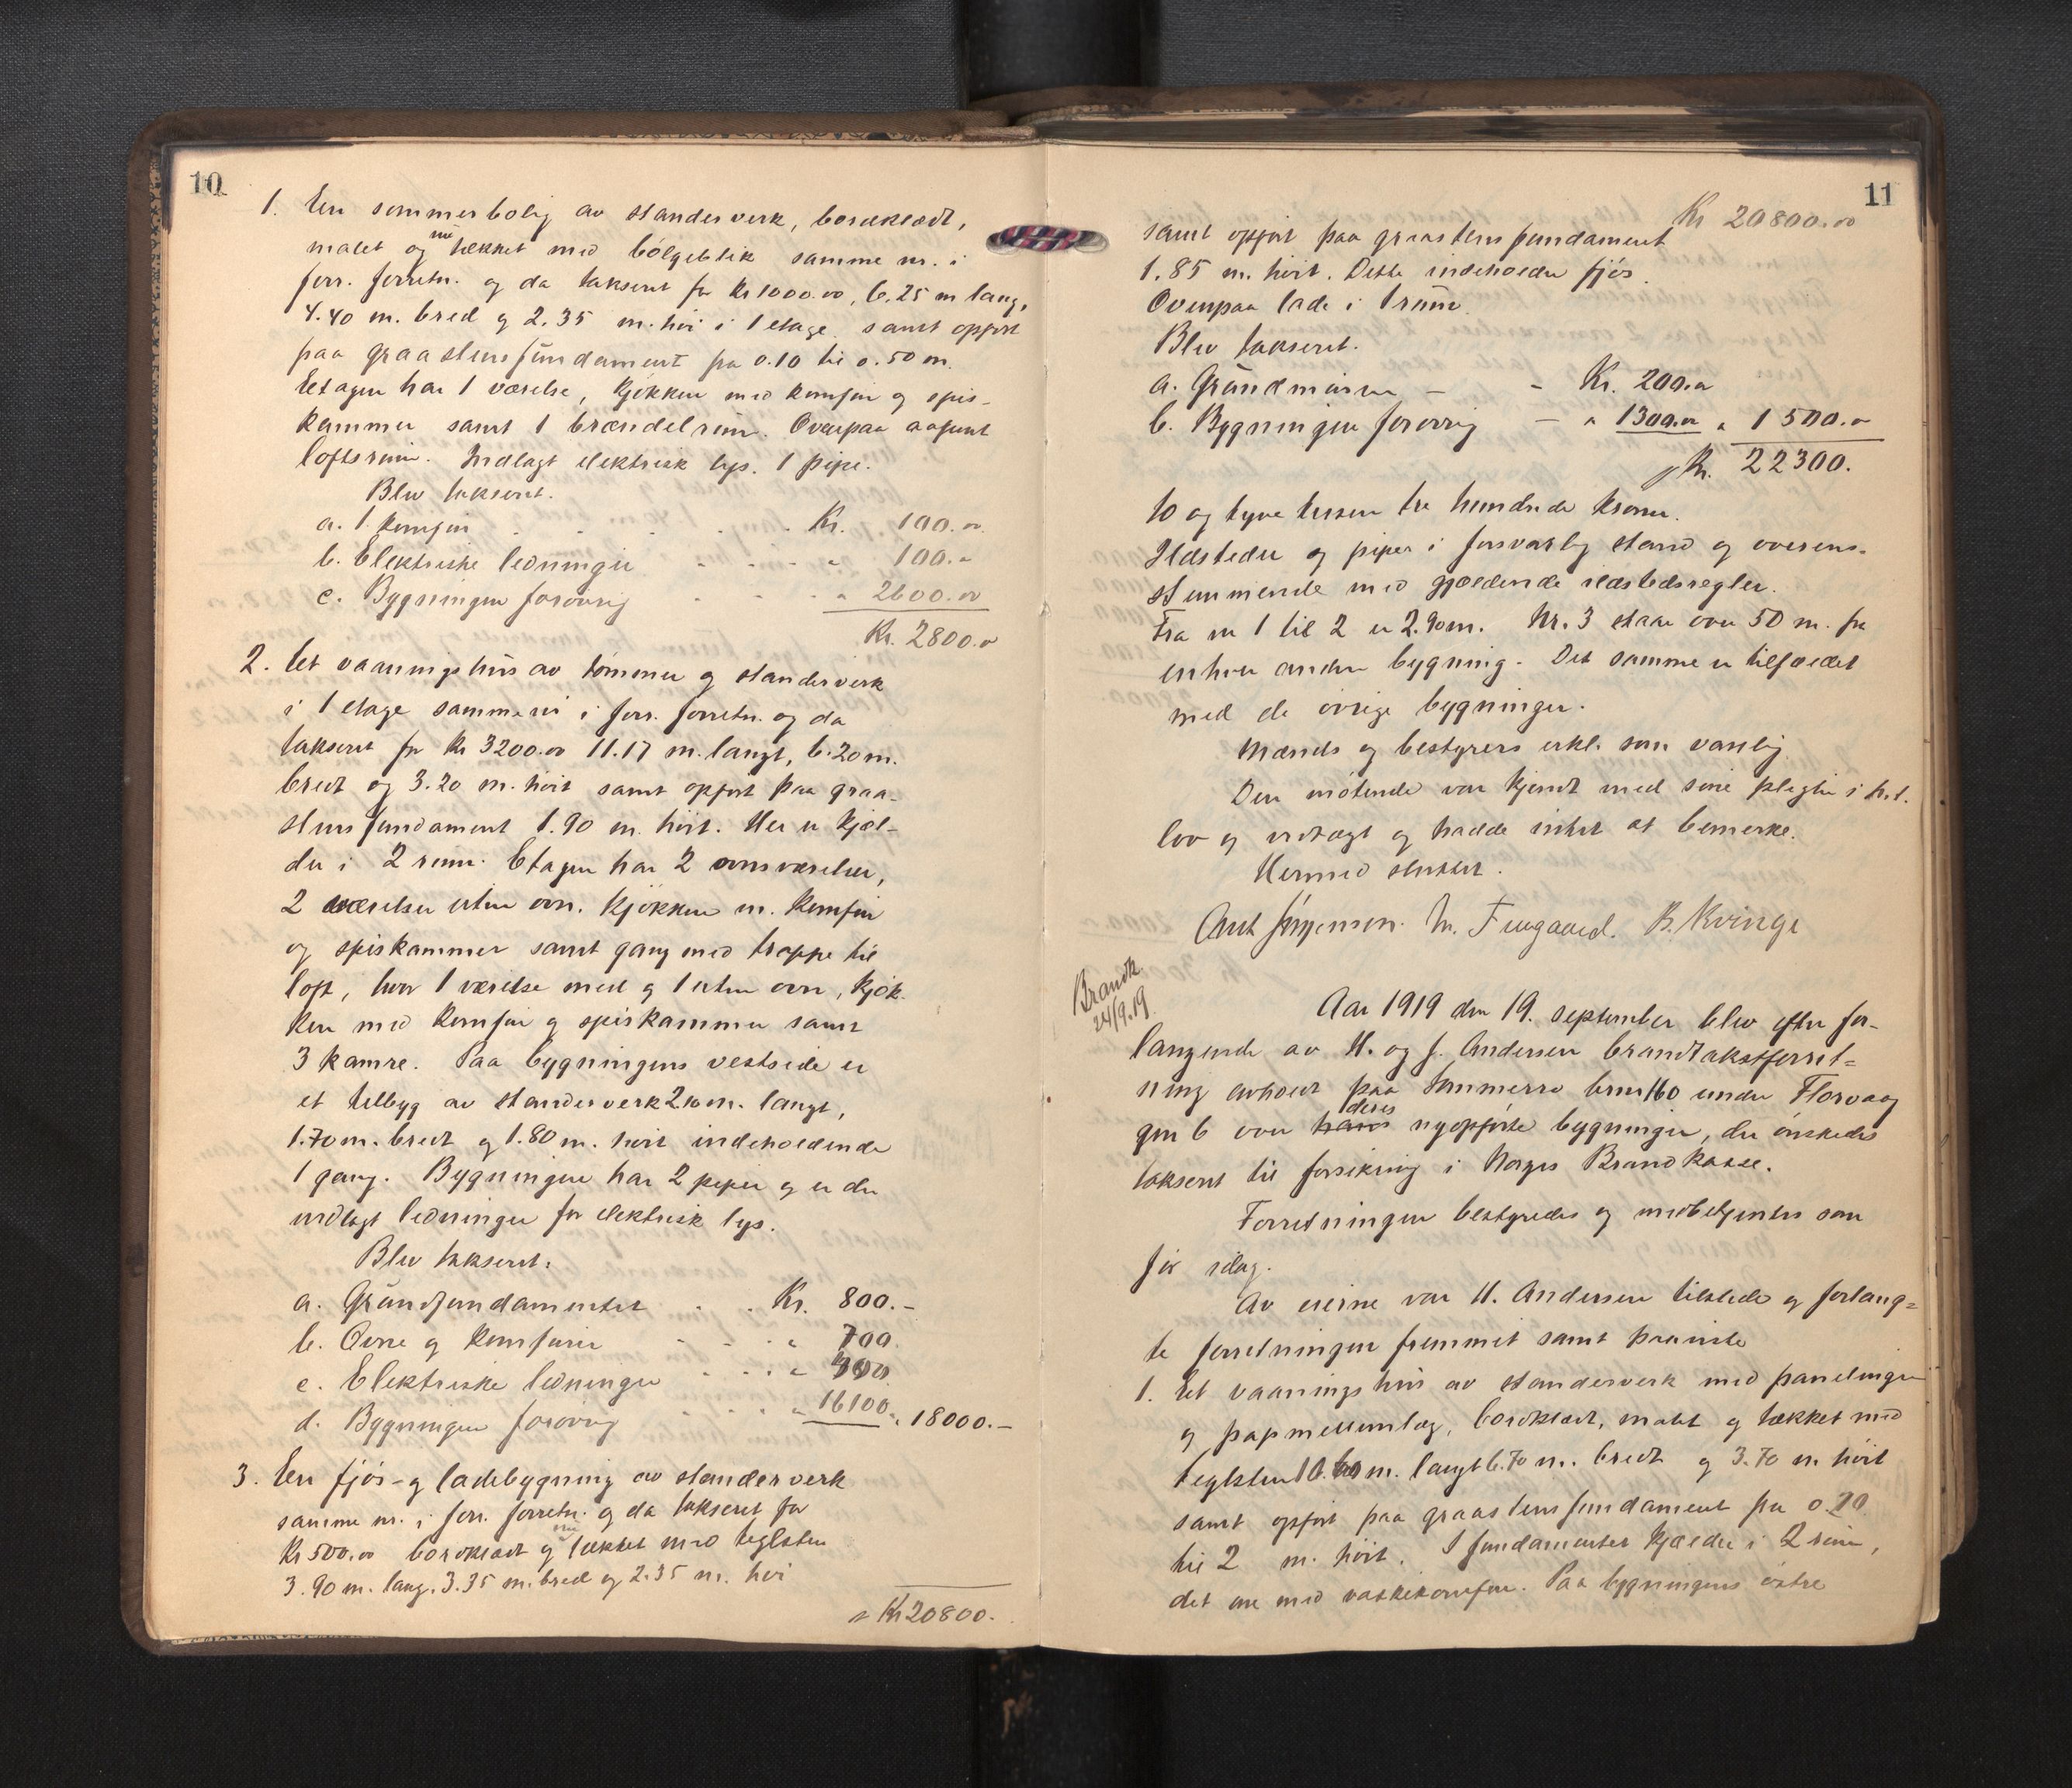 10
1. En sommerbolig av standerverk, bordklædt,
malet og nu tækket med bölgeblik samme nr. i
forr. forretn. og da takseret for Kr 1000.00, 6.25 m lang,
4.40 m. bred og 2.35 m. höi i 1 etage samt opfört
paa graastensfundament fra 0.10 til 0.50 m.
Etagen har 1 værelse, kjökken med komfur og spis-
kammer samt 1 brændelrum. Ovenpaa aapent
loftsrum. Indlagt elektrisk lys. 1 pipe.
Blev takseret.
a. 1 komfur . . . . . Kr. 100.00
b. Elektriske ledninger - - - " 100.00
c. Bygningen forövrig - - - " 2600.00
Kr. 2800.00
2. Et vaaningshus av tömmer og standerverk
i 1 etage samme nr i forr. forretn. og da
takseret for Kr 3200.00 11.17 m. langt, 6.20 m.
bredt og 3.20 m. höit samt opfört paa graa-
stensfundament 1.90 m. höit. Her er kjæl-
der i 2 rum. Etagen har 2 ovnsværelser,
2 værelser uten ovn. Kjökken m. komfur
og spiskammer samt gang med trappe til
loft, hvor 1 værelse med og 1 uten ovn, kjök-
ken med komfur og spiskammer samt
3 kamre. Paa bygningens vestside er
et tilbyg av standerverk 2.10 m. langt,
1.70 m. bredt og 1.80 m. höit indeholdende
1 gang. Bygningen har 2 piper og er der
indlagt ledninger for elektrisk lys.
Blev takseret:
a. Grundfundamentet . . Kr. 800.-
b. Ovne og komfurer - - " 700.
c. Elektriske ledninger - - - " 400.
d. Bygningen forövrig - - - " 16100. " 18000.-
3. En fjös- og ladebygning av standerverk
samme nr. i forr. forretn. og da takseret for
Kr 500.00 bordklædt og nu tækket med teglsten
3.90 m. lang. 3.35 m. bred og 2.35 m. höi
Kr 20800.
11
Kr 20800.00
samt opfört paa graastensfundament
1.85 m. höit. Dette indeholder fjös.
Ovenpaa lade i 1 rum.
Blev takseret.
a. Grundmuren - - Kr. 200.00
b. Bygningen forövrig - " 1300.00 " 1500.00
Kr. 22300.
to og tyve tusen tre hundrede kroner.
Ildsteder og piper i forsvarlig stand og overens-
stemmende med gjældende ildstedsregler.
Fra nr 1 til 2 er 2.90 m. Nr. 3 staar over 50 m. fra
enhver anden bygning. Det samme er tilfældet
med de övrige bygninger.
Mænds og bestyrers erkl. som vanlig.
Den mötende var kjendt med sine pligter i h.t.
lov og vedtægt og hadde intet at bemerke.
Hermed sluttet.
Ant Jörgensen. M. Furgaard. B. Kvinge
Brandk.
24/9.19.
Aar 1919 den 19. september blev efter for-
langende av H. og J. Andersen brandtakstforret-
ning avholdt paa Sommerro brnr 160 under Florvaag
gnr 6 over hans deres nyopförte bygninger, der önskedes
takseret til forsikring i Norges Brandkasse.
Forretningen bestyredes og medbetjentes som
för idag.
Av eierne var H. Andersen tilstede og forlang-
te forretningen fremmet samt paaviste
1. Et vaaningshus av standerverk med panelinger
og papmellemlæg, bordklædt, malet og tækket med
teglsten 10.60 m. langt 6.70 m. bredt og 3.70 m höit
samt opfört paa graastensfundament fra 0.20
til 2 m. höit. I fundamentet kjælder i 2 rum,
det ene med vaskekomfur. Paa bygningens östre